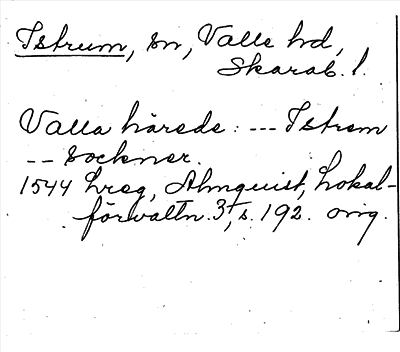 Istrum, sn, Valle hd,
Skarab. l.
Valla härede: --- Istrom
-- Sockner.
1544 Lreg, Almquist, Lokal-
förvaltn. 3, s. 192. orig.